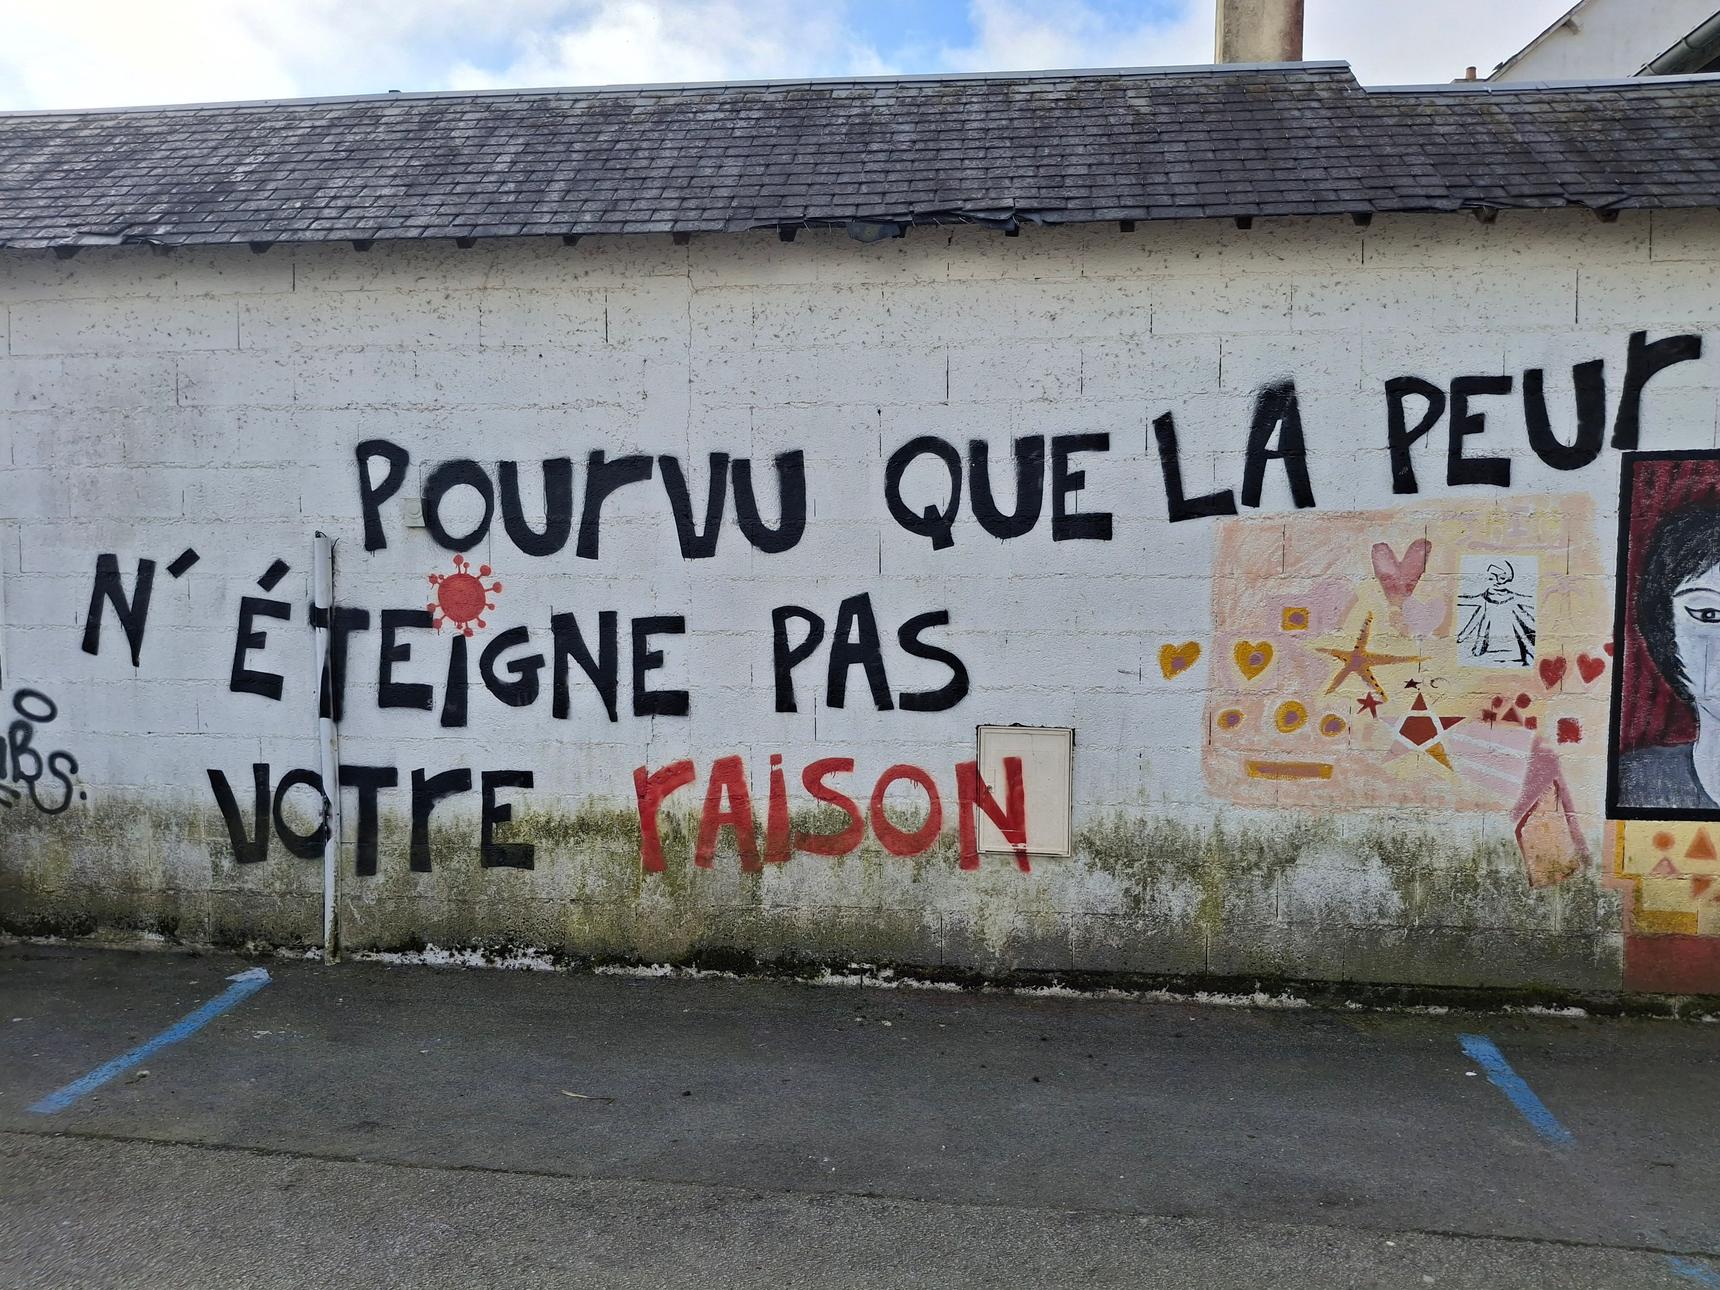 POURVU QUE LA PEUR
N'ÉTEIGNE PAS
VOTRE RAISON